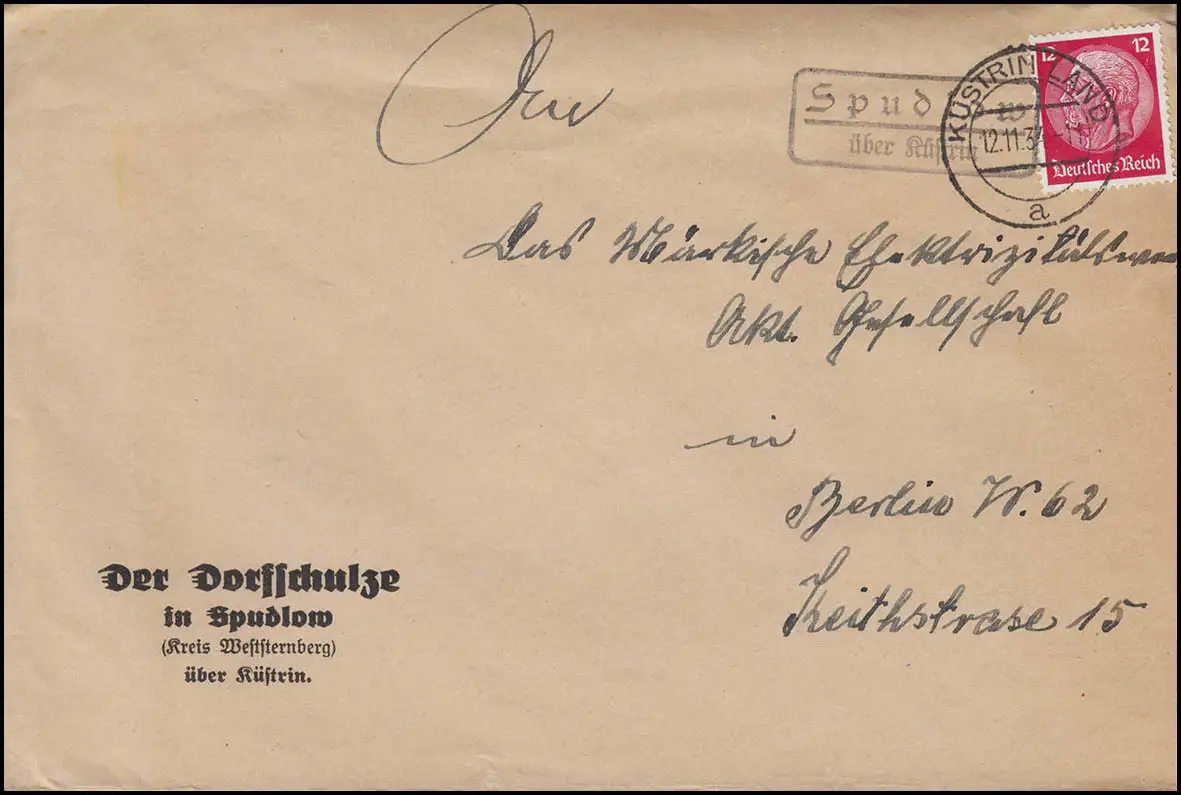 An
Spudlow
über Küstrin
KÜSTRIN LAND
12.11.34
a
12 12
Deutsches Reich
Das Märkische Elektrizitätswerk
Akt. Gesellschaft
in
Berlin W. 62
Keithstrase 15
Der Dorfschulze
in Spudlow
(Kreis Weststernberg)
über Küstrin.